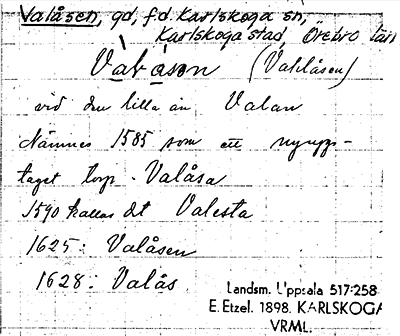 Valåsen, gd, f.d. Karlskoga sn,
Karlskoga stad, Örebro län
Valåsen (Vahlåsen)
vid den lilla ån Valan
Nämnes 1585 som ett nyupp-
taget torp - Valåsa
1590 kallas det Valesta
1625: Valåsen
1628: Valås
Landsm. Uppsala 517:258
E. Etzel. 1898. KARLSKOGA
VRML.